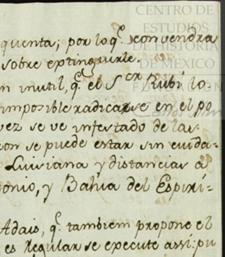 CENTRO DE
ESTUDIOS
DE HISTORIA
DE MEXICO
quenta; por lo q.e convendra
sobre extinguirle.
n inutil, q.e el S.or Rubi lo
imposible radicarse en el po
vez se ve infestado de las
on se puede estar sin cuida-
Luisiana y distancias de
onio, y Bahia del Espiri-
Adais, q.e tambien propone el
es regular se execute assi: pu